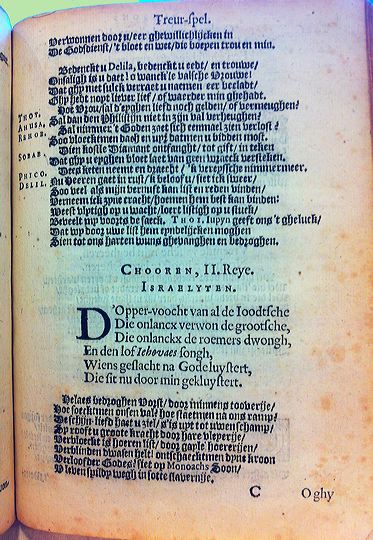 Treur-spel.
Verwonnen door u/eer ghewillichlijcken in
De Godsdienst/'t bloet en wet/die boepen trou en min.
Bedenckt u Delila, bedenckt u eedt/ en trouwe/
Onsaligh is u daet! o wanck'le valsche Vrouwe!
Dat ghy niet sulck verraet u naemen eer becladt/
Ghy hebt noyt liever lief / of waerder min ghehadt.
Hoe Vrou/sal d'eyghen liefd noch gelden / of vermeughen?
THOT.
Sal dan den Philistijn niet in zijn val verheughen?
AHUSA,
REHOB.
Sal nimmer 't Goden zaet sich eenmael zien verlost?
Soo vloeckmen daech en uyr datmen u bidden most.
SORAB.
Dien kostle Diamant ontfanght/ tot gift/ in teken
Dat ghy u eyghen vloet laet van gren wraeck versteken.
PHICO.
Dees keten neemt en dracht/ 'k vereyschse nimmermeer.
DELIL.
Nu Heeren gaet in rust/ ik beloof u/ siet ick sweer/
Soo veel als mijn vernuft kan list en reden vinden/
Verneem ick zyne cracht/ hoemen hem best kan binden:
Weest vlytigh op u wacht/ loert listigh op u stuck/
Beveelt my voorts de saeck. THOT. Iupyn geeft ons 't gheluck/
Dat wy door uwe list hem eyndelijcken moghen
Sien tot ons harten wuns ghevanghen en bedroghen.
CHOOREN, II. Reye.
ISRAELYTEN.
D'Opper-voocht van al de Ioodtsche
Die onlancx verwon de grootsche,
Die onlanckx de roemers dwongh,
En den lof Iehovaes songh,
Wiens geslacht na Gode luystert,
Die sit nu door min gekluystert.
Helaes bedroghen Vorst/ door minnens tooverije/
Hoe soecktmen onsen val? hoe staetmen na ons ramp?
De schijn-liefd haet u ziel/ s'is uyt tot uwen schamp/
Sy rooft u groote kracht door hare vleyerije/
Verbloeckt is hoeren list/ door gayle hoererijen/
Verblinden dwasen helt! ontschaecktmen dyne kroon
Verloofder Godes? siet op Monoachs Soon/
V leven spildy wegh in sotte slavernije.
C
O ghy